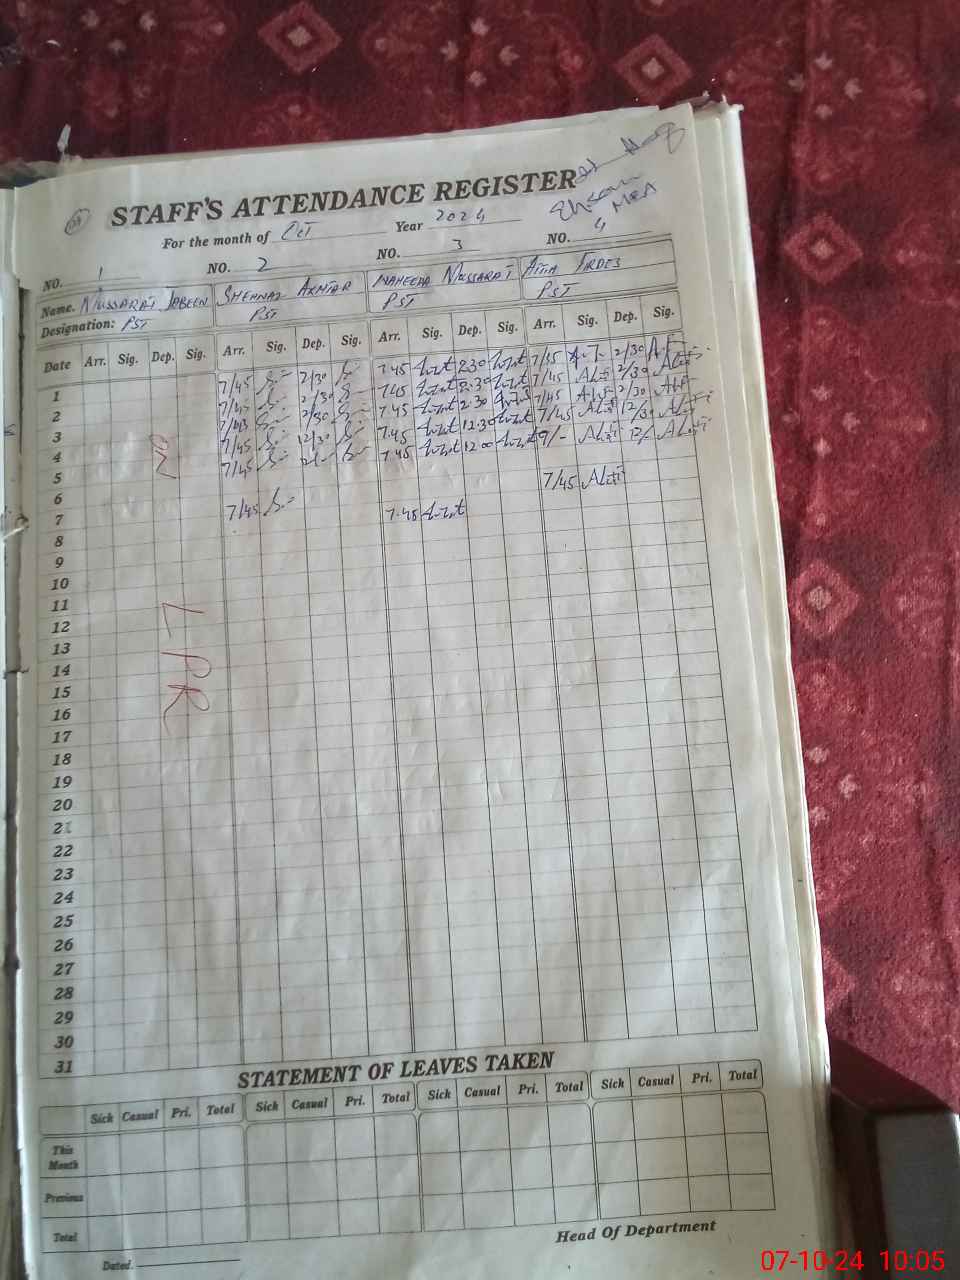 STAFF'S ATTENDANCE REGISTER
For the month of Oct Year 2024
Ehsan ul Haq
MEA
NO. 1 NO. 2 NO. 3 NO. 4
Name. MUSSARAT JABEEN SHEHNAZ AKHTAR WAHEEDA MUSSARAT ATIA FIRDES
Designation: PST PST PST PST
Date Arr. Sig. Dep. Sig. Arr. Sig. Dep. Sig. Arr. Sig. Dep. Sig. Arr. Sig. Dep. Sig.
1 7/45 2/30 7.45 2.30 7/45 2/30
2 7/45 2/30 7.45 2.30 7/45 2/30
3 7/45 2/30 7.45 2.30 7/45 2/30
4 7/45 12/30 7.45 12.30 7/45 12/30
5 7/45 7.45 12.00 9/- 12/-
6
7 7/45 7.45 7/45
8
9
10
11
12
13
14
15
16
17
18
19
20
21
22
23
24
25
26
27
28
29
30
31
ON
LPR
STATEMENT OF LEAVES TAKEN
Sick Casual Pri. Total Sick Casual Pri. Total Sick Casual Pri. Total Sick Casual Pri. Total
This
Month
Previous
Total
Head Of Department
Dated.
07-10-24 10:05